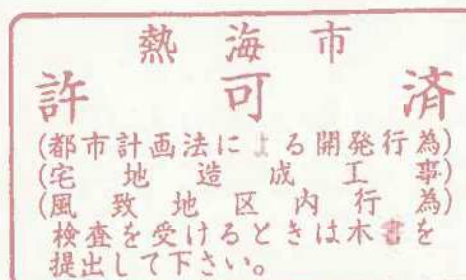 熱海市
許可済
(都市計画法による開発行為)
(宅地造成工事)
(風致地区内行為)
検査を受けるときは木書を
提出して下さい。